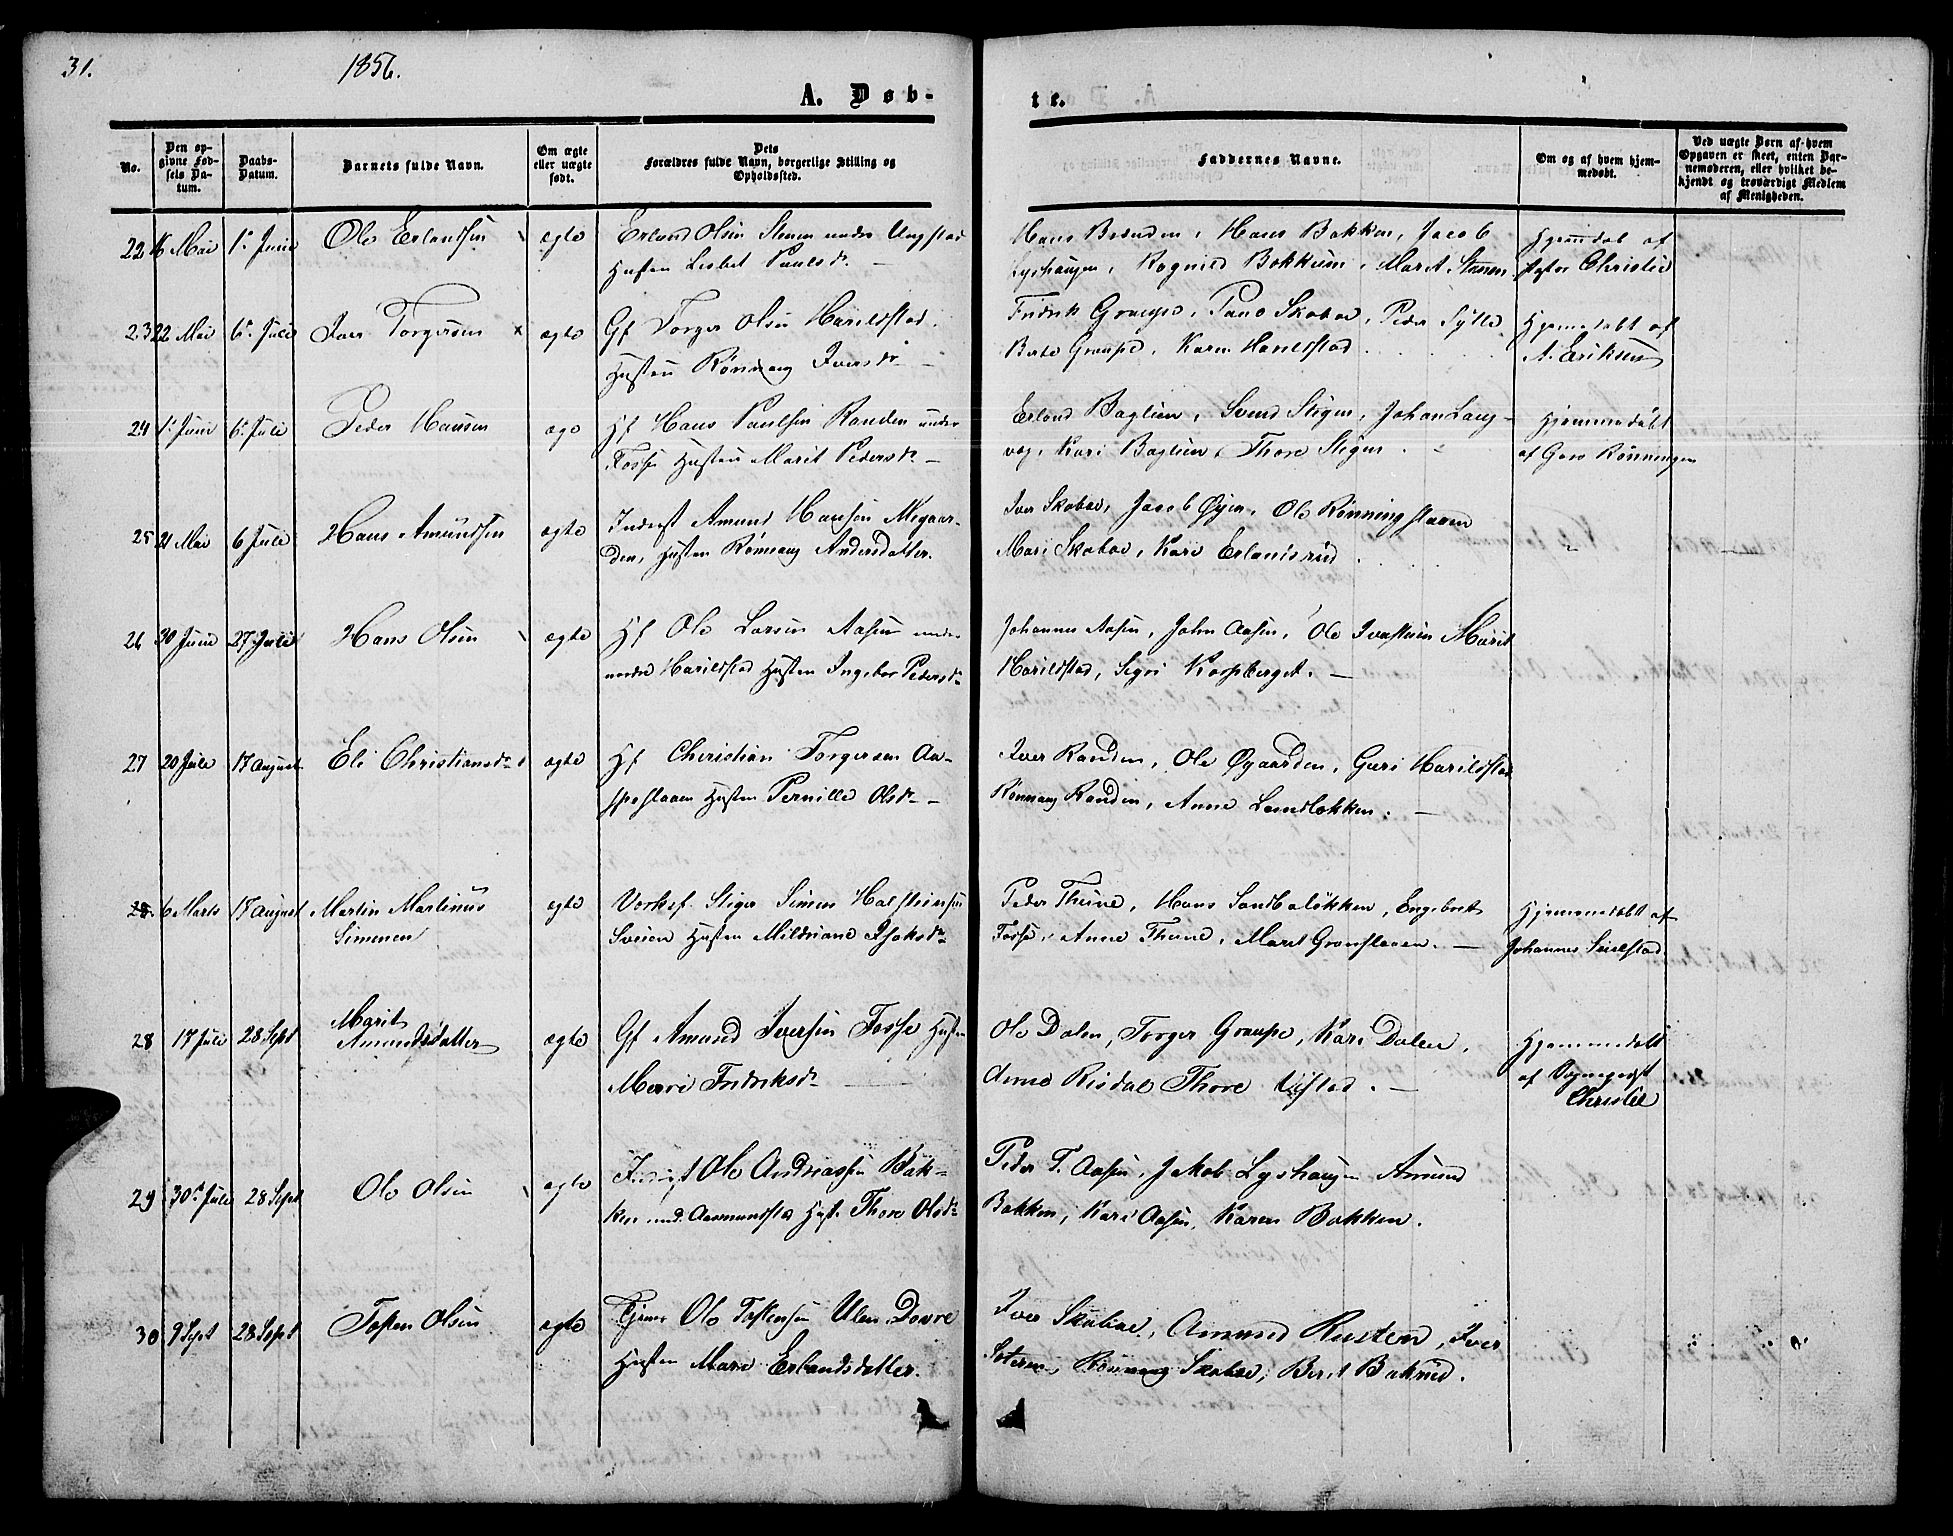 31.
1856.
A. Døb-
te.
No.
Den op-
givne Fød-
sels Da-
tum.
Daabs-
Datum.
Barnets fulde Navn.
Om ægte
eller uægte
født.
Dets
Forældres fulde Navn, borgerlige Stilling og
Opholdssted.
Faddernes Navne.
Om og af hvem hjem-
medøbt.
Ved uægte Børn af hvem
Opgaven er skeet, enten Bar-
nemoderen, eller hvilket be-
kjendt og troværdigt Medlem
af Menigheden.
22 16 Mai 1. Juni Ole Erlandsen ægte Erland Olsen under
Hustru Lisbet Paulsd.
Hans Brenden, Hans Bakken, Jacob
Lyshaugen, Ragnild Bakken, Marit
Hjemdøbt af
Pastor Christie
23 22 Mai 6. Juli Iver Torgersen x ægte Gf Torger Olsen Harildstad
Hustru Rønnaug Iversd.
Fredrik Graupe, Skobæ, Peder Sylte
Berte Graupe, Karen Harildstad
Hjemmedøbt af
A. Eriksen
24 1. Juni 6. Juli Peder Hansen Hf Hans Paulsen Randen under
Fosse Hustru Marit Pedersd.
Erland Baglien, Svend Stigen, Johan Lang-
vog, Kari Baglien, Thore Stigen
Hjemmedøbt
af Goro Rønningen
25 21 Mai 6 Juli Hans Amundsen ægte Inderst Amund Hansen
den, Hustru Rønnaug Andersdatter.
Iver Skobæ, Jacob Øyen, Ole Rønningslaaen
Mari Skobæ, Kari Erlandsrud
26 30 Juni 27 Juli Hans Olsen ægte Hf Ole Larsen Aasen under
nordre Harildstad Hustru Ingebor Pedersd.
Johannes Aasen, John Aasen, Ole Marit
Harildstad, Sigri Korpberget.
27 20 Juli 17 August Eli Christiansd. ægte Hf Christian Torgersen
Hustru Pernille Olsd.
Iver Randen, Ole Øygaarden, Guri Harildstad
Rønnaug Randen, Anne
28. 6 Marts 17 August Martin Martinus
Simensen
ægte Vorksf. Stiger Simen Halsteinsen
Sveien Hustru Mildriane Isaksd.
Peder Thune, Hans Sandbaløkken, Engebret
Fosse, Anne Thune, Marit Grønslaaen.
Hjemmedøbt af
Johannes Seielstad
28 17 Juli 28 Sept Marit
Amundsdatter
ægte Gf Amund Iversen Fosse Hustru
Mari Fredriksd.
Ole Dalen, Torger Graupe, Kari Dalen,
Anne Risdal Thore Ulstad.
Hjemmedøbt
af Sognepræst
Christie
29 30. Juli 28 Sept Ole Olsen ægte Inderst Ole Andreassen Bak-
ken und. Aasmundstad Hust. Thore Olsd.
Peder T. Aasen, Jakob Lyshaugen Amund
Bakken, Kari Aasen, Karen Bakken.
30 9 Sept 28 Sept Tosten Olsen ægte Tjener Ole Tostensen Ulen Dovre
Hustru Mari Erlandsdatter.
Iver Skobæ, Amund Rusten, Iver
Rønnaug Skobæ, Berit Bakrud.